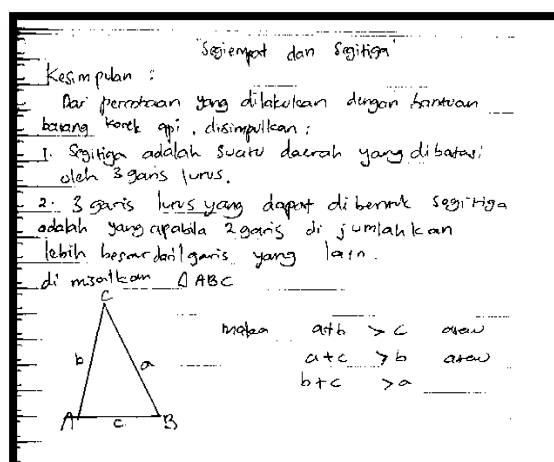 "Segiempat dan Segitiga"
Kesimpulan :
Dari percobaan yang dilakukan dengan bantuan
batang korek api, disimpulkan :
1. Segitiga adalah suatu daerah yang dibatasi
oleh 3 garis lurus.
2. 3 garis lurus yang dapat dibentuk segitiga
adalah yang apabila 2 garis di jumlahkan
lebih besar dari 1 garis yang lain.
di misalkan △ABC
C
maka a+b > c atau
b a a+c > b atau
b+c > a
A c B